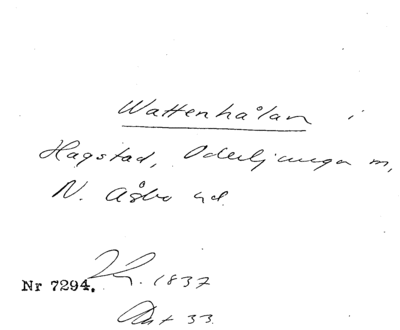 Wattenhålan i
Hagstad, Oderljunga m,
N. Åsbo hd.
1837
Nr 7294.
Akt 33.